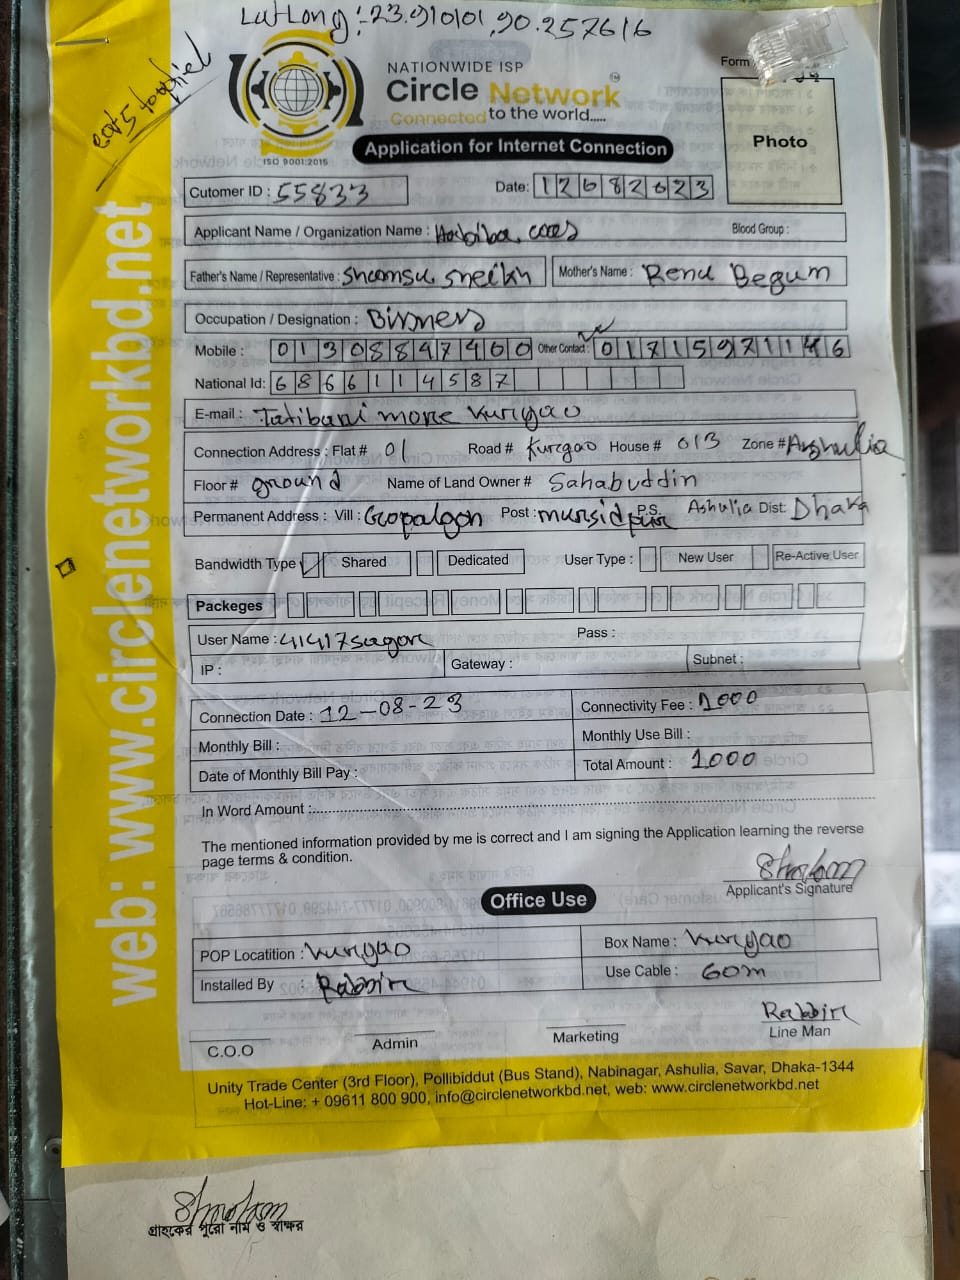 Lat Long :- 23.910101, 90.257616
cat5
NATIONWIDE ISP
Form
Circle Network
TM
Connected to the world.....
ISO 9001:2015
Application for Internet Connection
Photo
Cutomer ID : 55833
Date: 12082023
Applicant Name / Organization Name : Habiba
Blood Group :
Father's Name / Representative : Shamsu Sheikh
Mother's Name : Renu Begum
Occupation / Designation : Bisness
Mobile : 01308847400 Other Contact : 01715971146
National Id: 6866114587
E-mail : Tatibari more Kurgao
Connection Address : Flat # 01 Road # Kurgao House # 013 Zone # Ashulia
Floor # ground Name of Land Owner # Sahabuddin
Permanent Address : Vill : Gopalgon Post : mursidpur P.S. Ashulia Dist: Dhaka
Bandwidth Type Shared Dedicated User Type : New User Re-Active User
Packeges
User Name : 41417sagor Pass :
IP : Gateway : Subnet :
Connection Date : 12-08-23 Connectivity Fee : 1000
Monthly Bill : Monthly Use Bill :
Date of Monthly Bill Pay : Total Amount : 1000
In Word Amount :
The mentioned information provided by me is correct and I am signing the Application learning the reverse
page terms & condition.
Applicant's Signature
Office Use
POP Locatition : Kurgao Box Name : Kurgao
Installed By : Rabbir Use Cable : 60m
Rabbir
C.O.O Admin Marketing Line Man
Unity Trade Center (3rd Floor), Pollibiddut (Bus Stand), Nabinagar, Ashulia, Savar, Dhaka-1344
Hot-Line: + 09611 800 900, info@circlenetworkbd.net, web: www.circlenetworkbd.net
web: www.circlenetworkbd.net
গ্রাহকের পুরো নাম ও স্বাক্ষর